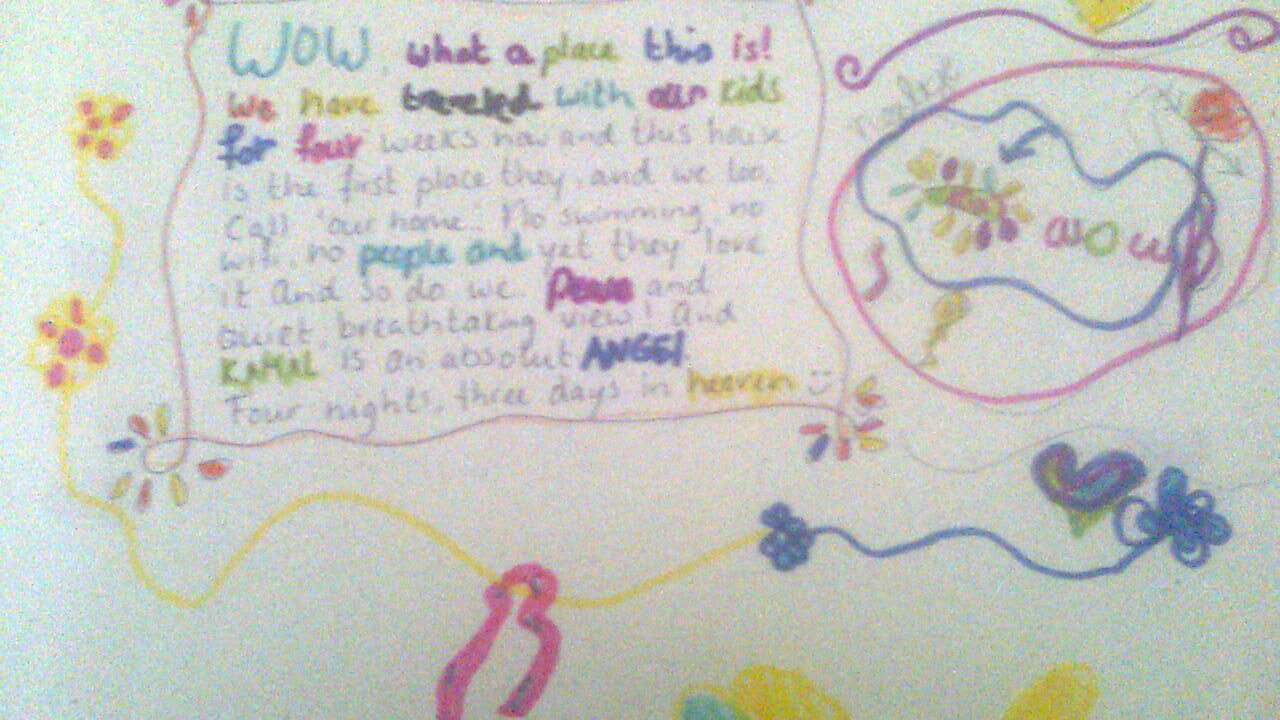 WOW, what a place this is!
We have traveled with our kids
for four weeks now and this house
is the first place they, and we too,
Call 'our home'. No swimming, no
wifi, no people and yet they love
it And so do we. Peace and
Quiet, breathtaking view! And
KAMAL is an absolut ANGEL.
Four nights, three days in heaven